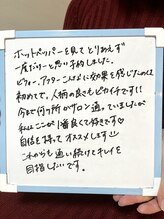 ホットペッパーを見てとりあえず
一度だけと思い予約しました。
ビフォー、アフターこんなに効果を感じたのは
初めてで、人柄の良もピカイチです!!
今まで何ヶ所かサロン通っていましたが
私はここが1番良くて好きです♡
自信を持ってオススメします♡
これからも通い続けてキレイを
目指したいです。